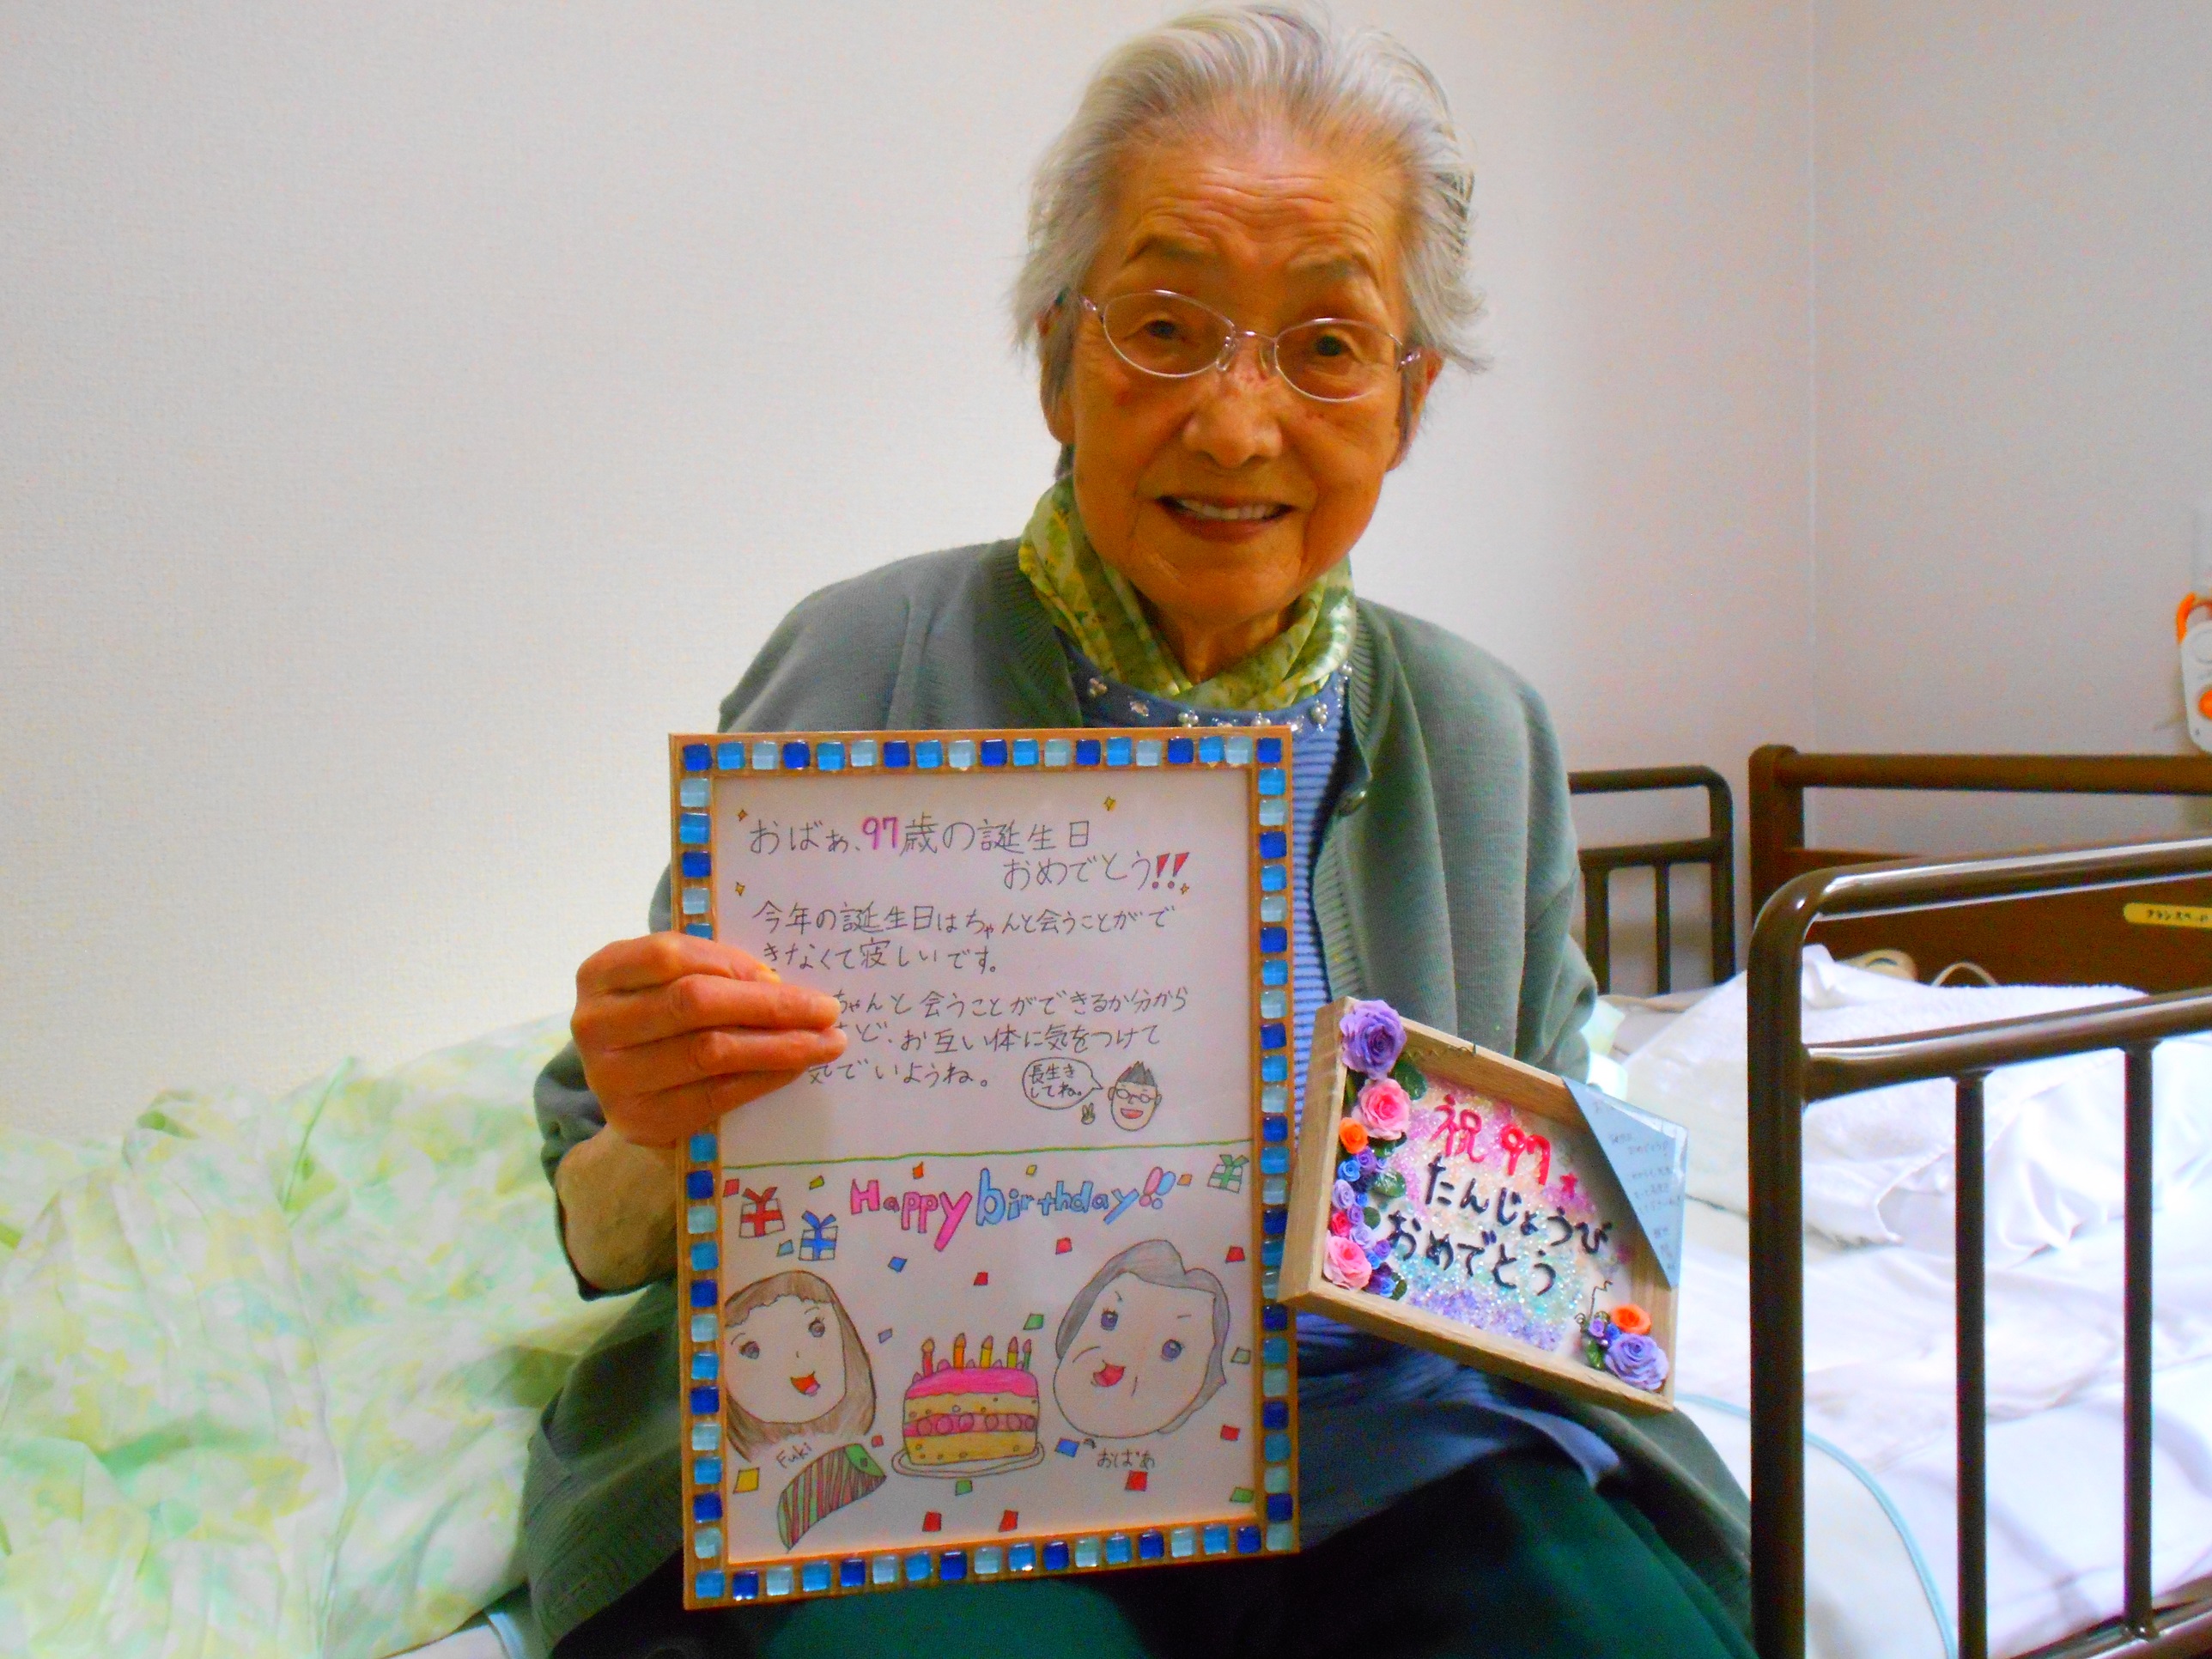 おばぁ、97歳の誕生日
おめでとう!!
今年の誕生日はちゃんと会うことがで
きなくて寂しいです。
ちゃんと会うことができるか分から
ど、お互い体に気をつけて
気でいようね。
長生き
してね。
Happy birthday!!
Fuki
おばあ
祝97
たんじょうび
おめでとう
フランスベッド